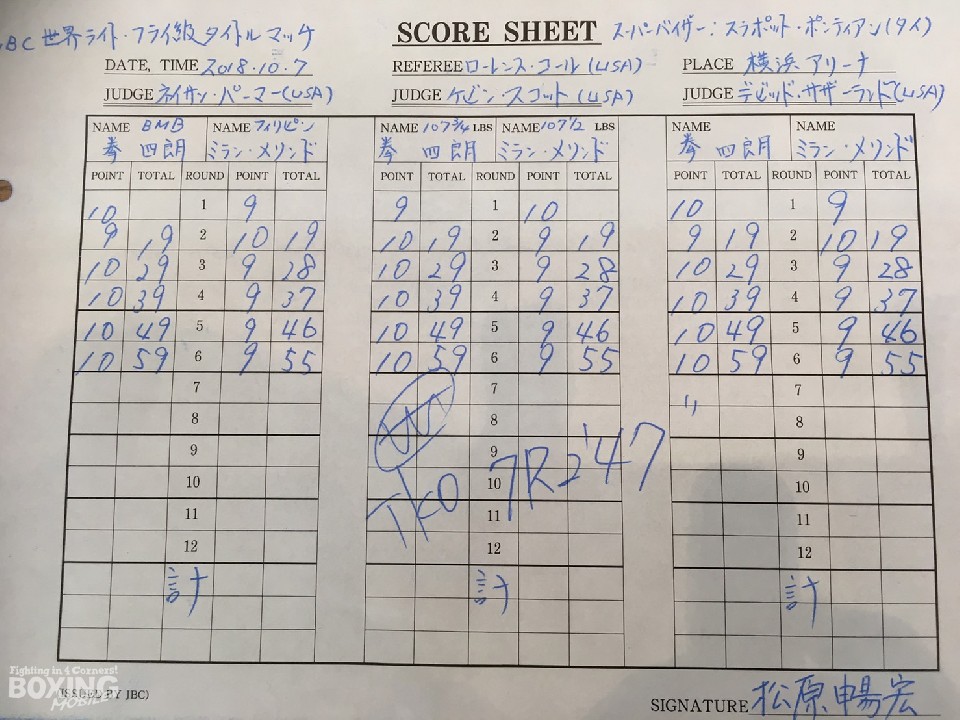 BC 世界ライト・フライ級タイトルマッチ
SCORE SHEET
スーパーバイザー：スラポット・ポンティアン(タイ)
DATE, TIME 2018.10.7
REFEREE ローレンス・コール(USA)
PLACE 横浜アリーナ
JUDGE ネイサン・パーマー(USA)
JUDGE ケビン・スコット(USA)
JUDGE デビッド・サザーランド(USA)
NAME BMB NAME フィリピン NAME 107 3/4 LBS NAME 107 1/2 LBS NAME NAME
拳 四朗 ミラン・メリンド 拳 四朗 ミラン・メリンド 拳 四朗 ミラン・メリンド
POINT TOTAL ROUND POINT TOTAL POINT TOTAL ROUND POINT TOTAL POINT TOTAL ROUND POINT TOTAL
10 1 9 9 1 10 10 1 9
9 19 2 10 19 10 19 2 9 19 9 19 2 10 19
10 29 3 9 28 10 29 3 9 28 10 29 3 9 28
10 39 4 9 37 10 39 4 9 37 10 39 4 9 37
10 49 5 9 46 10 49 5 9 46 10 49 5 9 46
10 59 6 9 55 10 59 6 9 55 10 59 6 9 55
7 7 7
8 8 8
9 9 9
10 10 10
TKO 7R 2'47
11 11 11
12 12 12
計 計 計
Fighting in 4 Corners!
BOXING
MOBILE
(ISSUED BY JBC)
SIGNATURE 松原暢宏